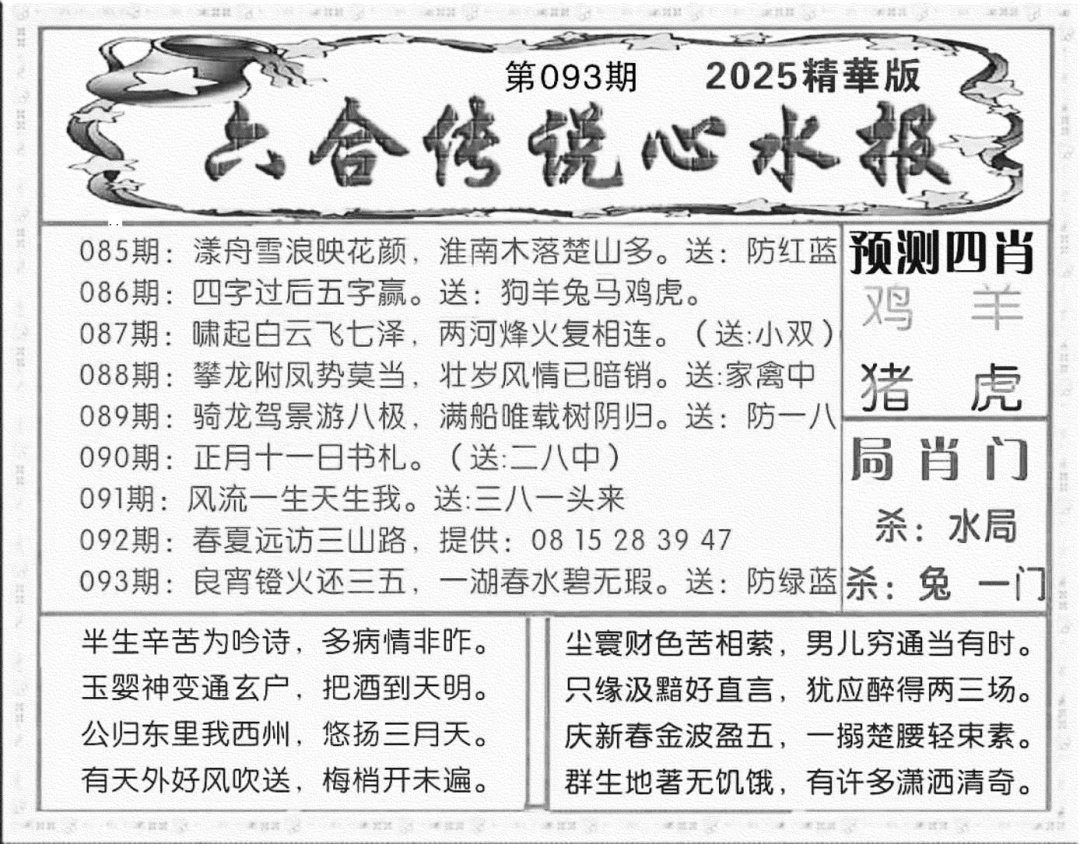 第093期 2025精華版
六合传说心水报
085期：漾舟雪浪映花颜，淮南木落楚山多。送：防红蓝
086期：四字过后五字赢。送：狗羊兔马鸡虎。
087期：啸起白云飞七泽，两河烽火复相连。（送:小双）
088期：攀龙附凤势莫当，壮岁风情已暗销。送:家禽中
089期：骑龙驾景游八极，满船唯载树阴归。送：防一八
090期：正月十一日书札。（送:二八中）
091期：风流一生天生我。送:三八一头来
092期：春夏远访三山路，提供：08 15 28 39 47
093期：良宵镫火还三五，一湖春水碧无瑕。送：防绿蓝
预测四肖
鸡 羊
猪 虎
局肖门
杀：水局
杀：兔 一门
半生辛苦为吟诗，多病情非昨。
玉婴神变通玄户，把酒到天明。
公归东里我西州，悠扬三月天。
有天外好风吹送，梅梢开未遍。
尘寰财色苦相萦，男儿穷通当有时。
只缘汲黯好直言，犹应醉得两三场。
庆新春金波盈五，一搦楚腰轻束素。
群生地著无饥饿，有许多潇洒清奇。